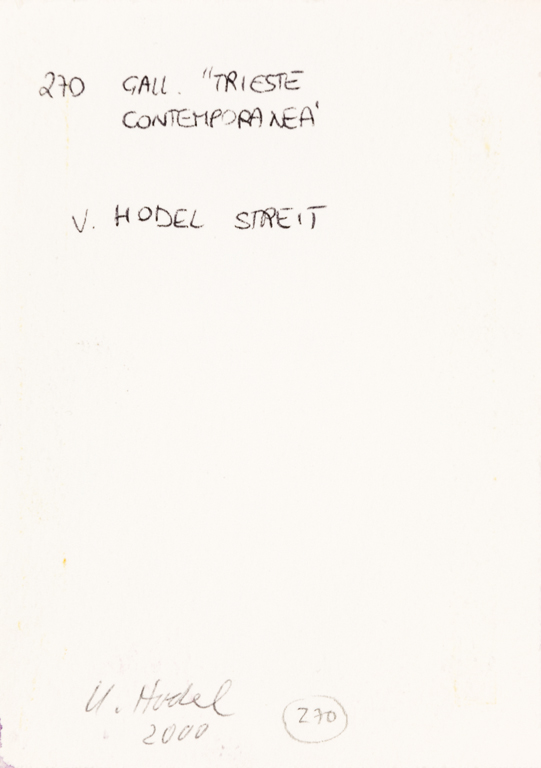 270 GALL. "TRIESTE
CONTEMPORANEA"
V. HODEL STREIT
V. Hodel
2000
270